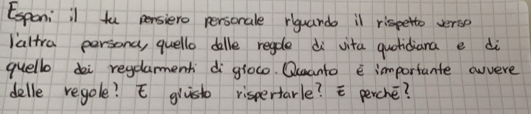 Esponi il tu pensiero personale riguardo il rispetto verso
l'altra persona, quello delle regole di vita quotidiana e di
quello dei regolamenti di gioco. Quanto è importante avvere
delle regole? E giusto rispertarle? E perchè?